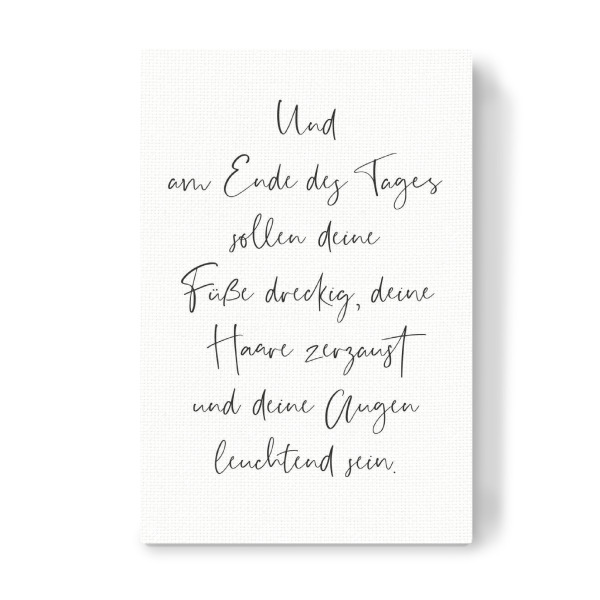 Und
am Ende des Tages
sollen deine
Füße dreckig, deine
Haare zerzaust
und deine Augen
leuchtend sein.